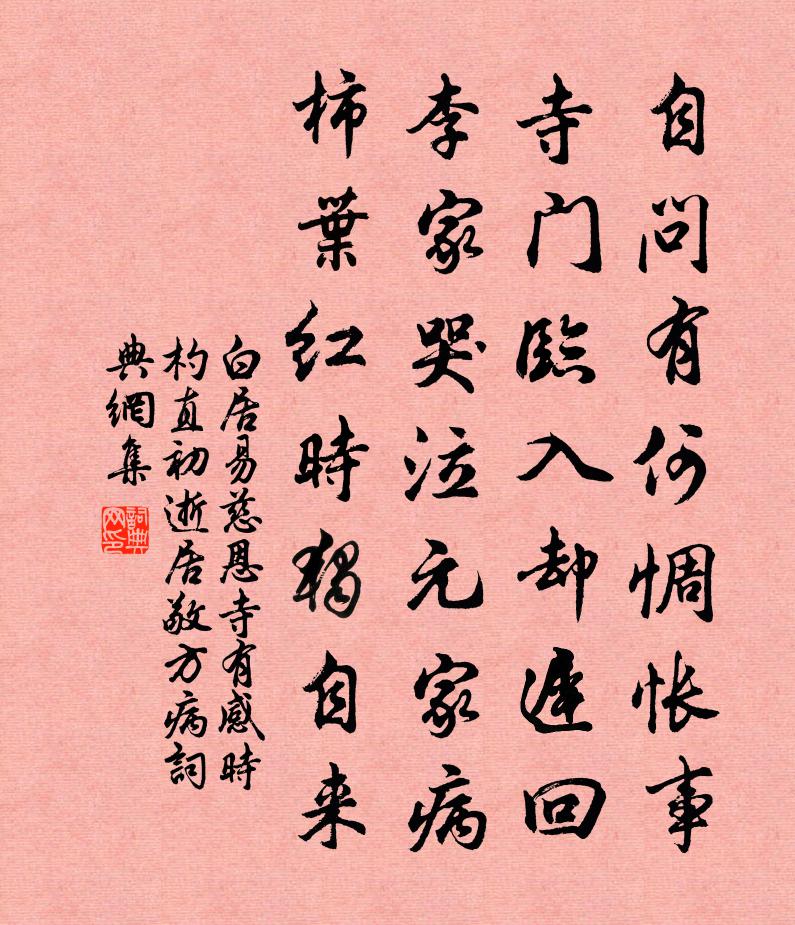 自问有何惆怅事
寺门临入却迟回
李家哭泣元家病
柿葉红時獨自来
白居易慈恩寺有感時
杓直初逝居敬方病詞
典網集
詞典网印